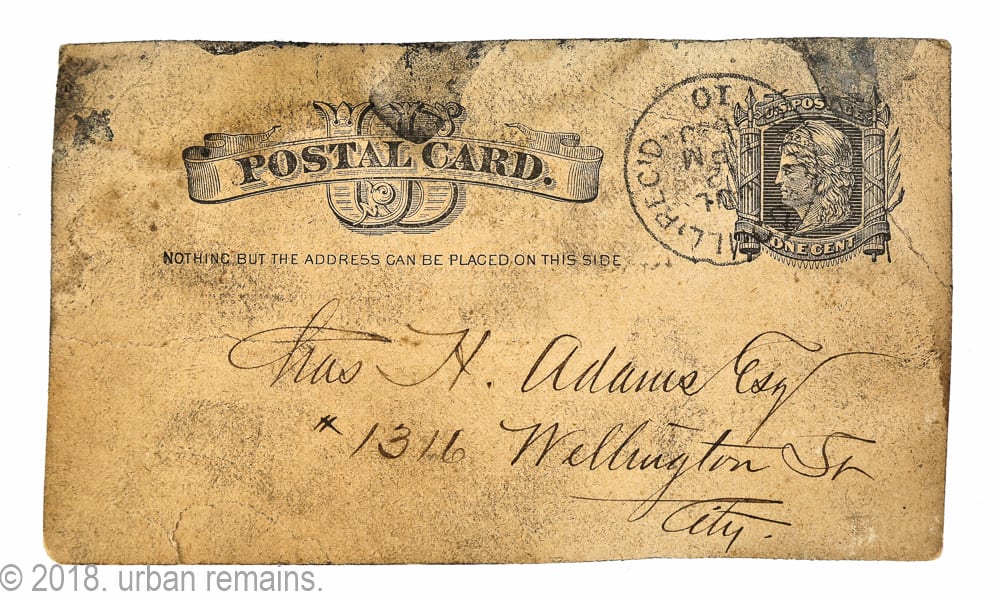 POSTAL CARD.
U.S. POSTAGE
NOTHING BUT THE ADDRESS CAN BE PLACED ON THIS SIDE
ONE CENT
REC'D
10
M
Chas H. Adams Esq
1316 Wellington St
City.
© 2018. urban remains.